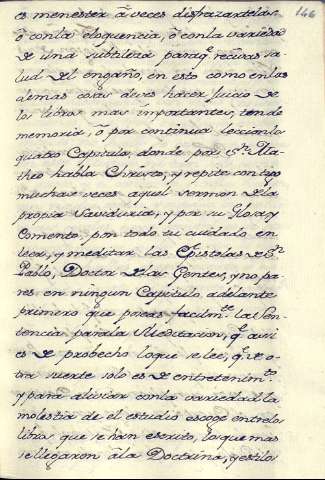 146
es menester â veces disfrazartelas,
ô con la eloquencia, ô con la variedad
de una subtileza paraq.e recivas sa-
lud del engaño, en esto como en las
demas cosas deves hacer Juicio de
los libros mas importantes, ten de
memoria, ô por continua lection los
quatro Capitulos, donde por S.n Ma-
theo habla Christo, y repite contigo
muchas veces aquel sermon de la
propia Saviduria, y por su Glosa y
Comento, pon todo tu cuidado en
leer, y meditar las Epistolas de S.n
Pablo, Doctor de las Gentes, y no pa-
res en ningun Capitulo adelante
primero que poseas facilm.te la Sen-
tencia para la Meditacion, q.e assi
es de probecho loque se lee, q.e de o-
tra suerte solo es de entretenim.to
y para aliviar con la variedad la
molestia de el estudio escoge entre los
libros que se han escrito, los que mas
se llegaron â la Doctrina, y estilo